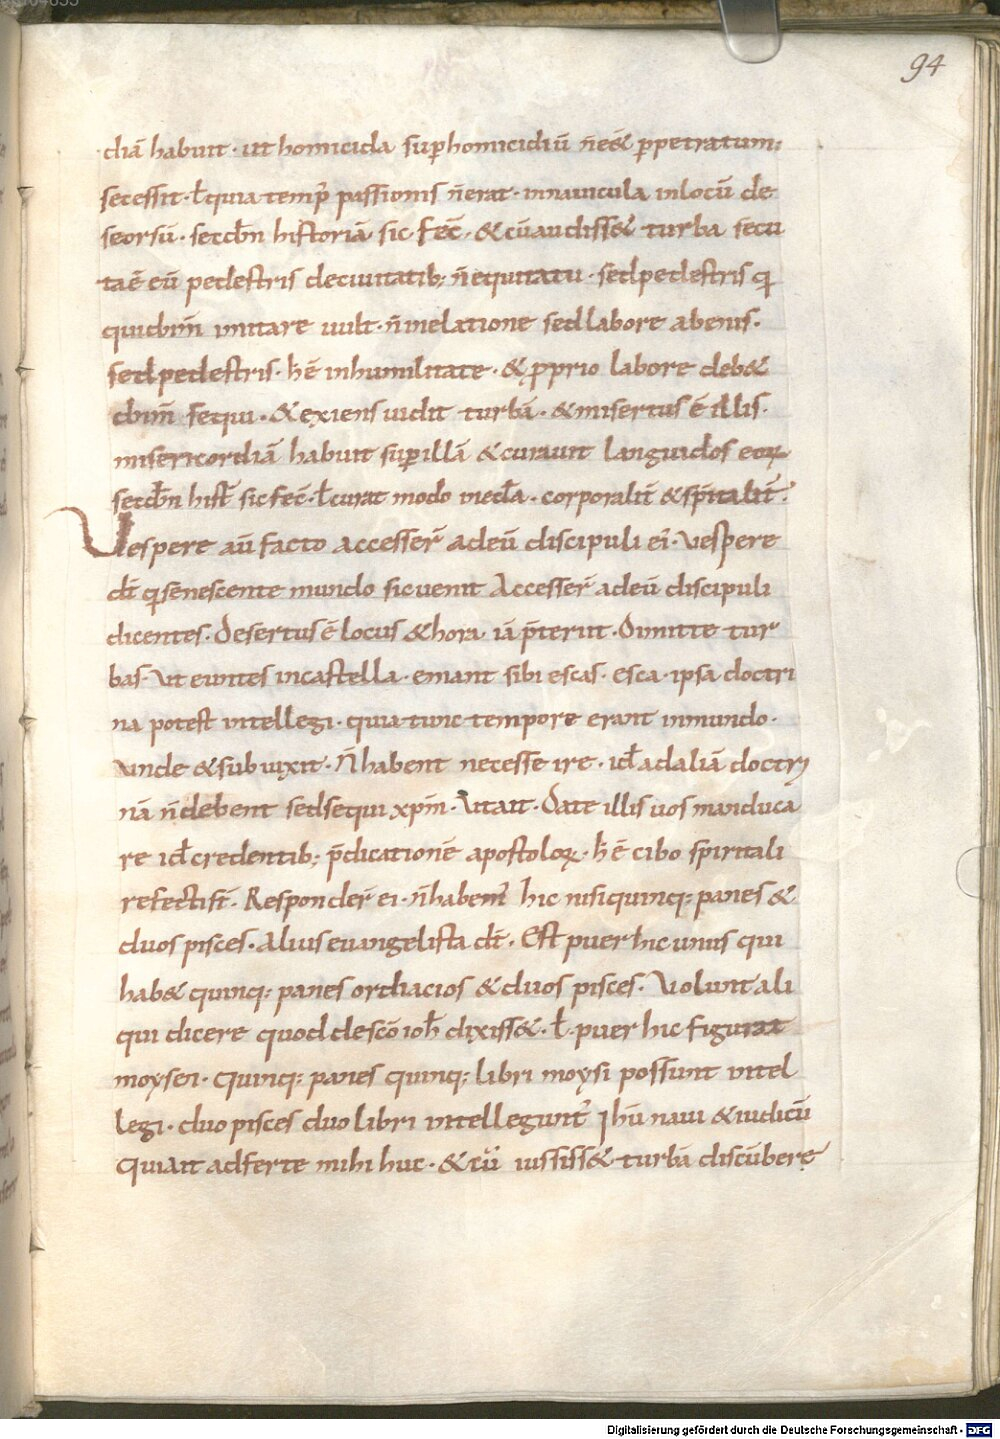 94
diā habuit · ut homicida sup homicidiū n̄ eēt ꝑpetratum;
secessit · ł quia temꝑ passionis n̄ erat · in nauicula in locū de
seorsū · secdn̄ historiā sic fec̄ · & cū audiss& turba secu
tae ē eū pedestris de ciuitatib; n̄ equitatu · sed pedestris q
qui dnm̄ imitare uult · n̄ in elatione sed labore abenis ·
sed pedestris · h̄ ē in humilitate · & ꝓprio labore deb&
dnm̄ sequi · & exiens uidit turbā · & misertus ē illis ·
misericordiā habuit sup illā & curauit languidos eoꝝ
secdn̄ hist̄ sic fec̄ · ł curat modo medła · corporalit̄ & spitalit̄ ·
Uespere aū facto accesser̄ ad eū discipuli ei · uespere
dt̄ q senescente mundo sic uenit Accesser̄ ad eū discipuli
dicentes · Desertus ē locus & hora iā p̄terut · Dimitte tur
bas · ut euntes in castella · emant sibi escas · esca · ipsa doctri
na potest intellegi · quia tunc tempore erant in mundo ·
unde & sub uixit · N̄ habent necesse ire · id̄ ad aliā doctri
nā n̄ debent sed sequi xpm̄ · Ut ait · Date illis uos manduca
re id̄ credentib; p̄dicationē apostoloꝝ · h̄ ē cibo spiritali
refecti st̄ · Responder̄ ei · n̄ habem̄ hic nisi quinq; panes &
duos pisces · Alius euangelista dt̄ · Est puer hic unus qui
hab& quinq; panes ordiacios & duos pisces · Uolunt ali
qui dicere quod de scō ioh̄ dixiss& · ł · puer hic figurat
moysen · Quinq; panes quinq; libri moysi possunt intel
legi · duo pisces duo libri intellegunt̄ ihū naui & iudicū
Qui ait adferte mihi huc · & cū iussiss& turbā discūbere
Digitalisierung gefördert durch die Deutsche Forschungsgemeinschaft - DFG